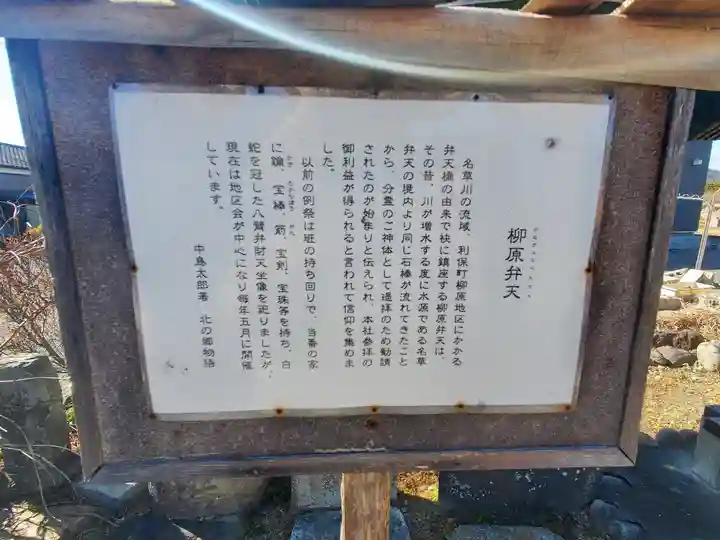 柳原弁天
やなぎはらべんてん
名草川の流域、利保町柳原地区にかかる
弁天橋の由来で袂に鎮座する柳原弁天は、
その昔、川が増水する度に水源である名草
弁天の境内より同じ石棒が流れてきたこと
から、分霊のご神体として遥拝のため勧請
されたのが始まりと伝えられ、本社参拝の
御利益が得られると言われて信仰を集めま
した。
以前の例祭は班の持ち回りで、当番の家
に鑰、宝棒、箭、宝剣、宝珠等を持ち、白
蛇を冠した八臂弁財天坐像を祀りましたが、
現在は地区会が中心になり毎年五月に開催
しています。
中島太郎著　北の郷物語